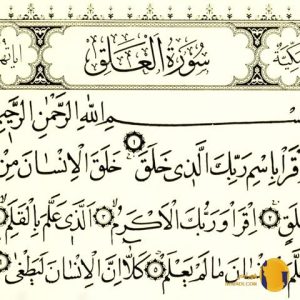 سُورَةُ الْعَلَقِ
بِسْمِ اللهِ الرَّحْمٰنِ الرَّحِيمِ
اِقْرَأْ بِاسْمِ رَبِّكَ الَّذِي خَلَقَ ۝١ خَلَقَ الْاِنْسَانَ مِنْ
عَلَقٍ ۝٢ اِقْرَأْ وَرَبُّكَ الْاَكْرَمُ ۝٣ اَلَّذِي عَلَّمَ بِالْقَلَمِ ۝٤
مَالَمْ يَعْلَمْ ۝٥ كَلَّا اِنَّ الْاِنْسَانَ لَيَطْغٰى